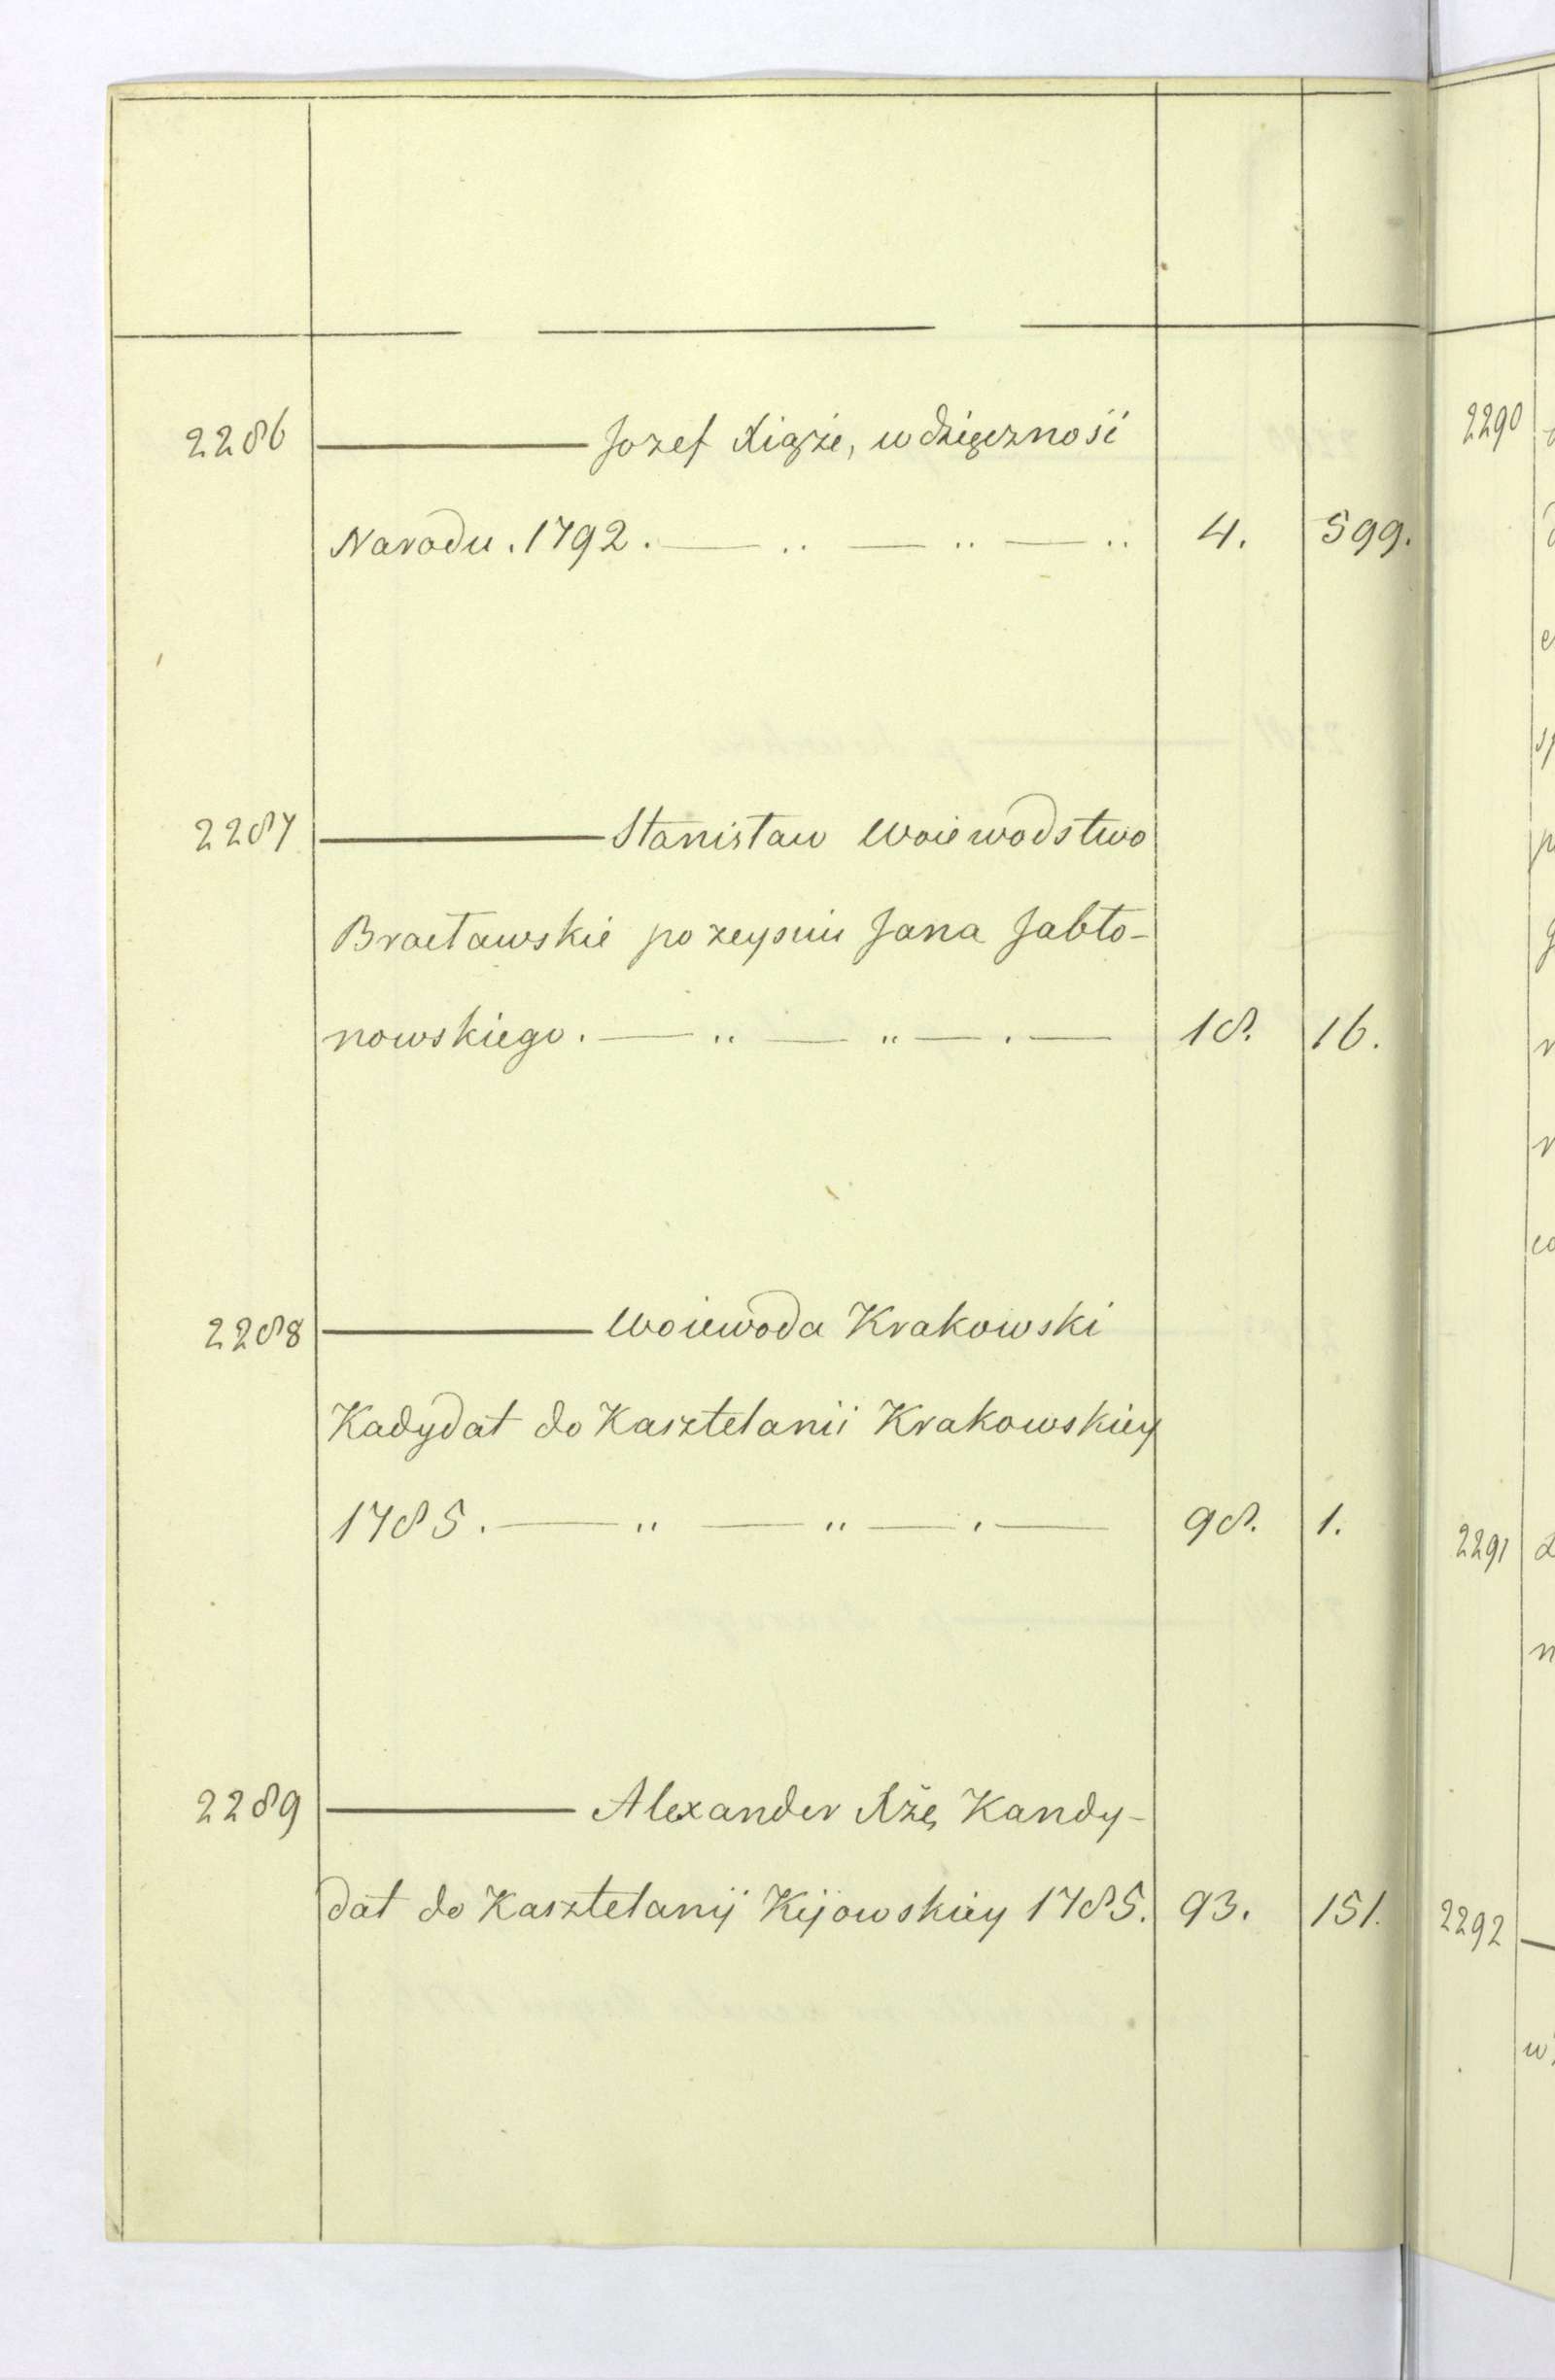 2286 ——— Jozef Xiąże, wdzięczność
Narodu. 1792. — .. — .. — .. 4. 599.
2287 ——— Stanisław Woiewodstwo
Bracławskie po zeyściu Jana Jabło-
nowskiego. — .. — .. — . — 18. 16.
2288 ——— Woiewoda Krakowski
Kadydat do Kasztelanii Krakowskiey
1785. — .. — .. — . — 98. 1.
2289 ——— Alexander Xże, Kandy-
dat do Kasztelanij Kijowskiey 1785. 93. 151.
2290
2291
2292